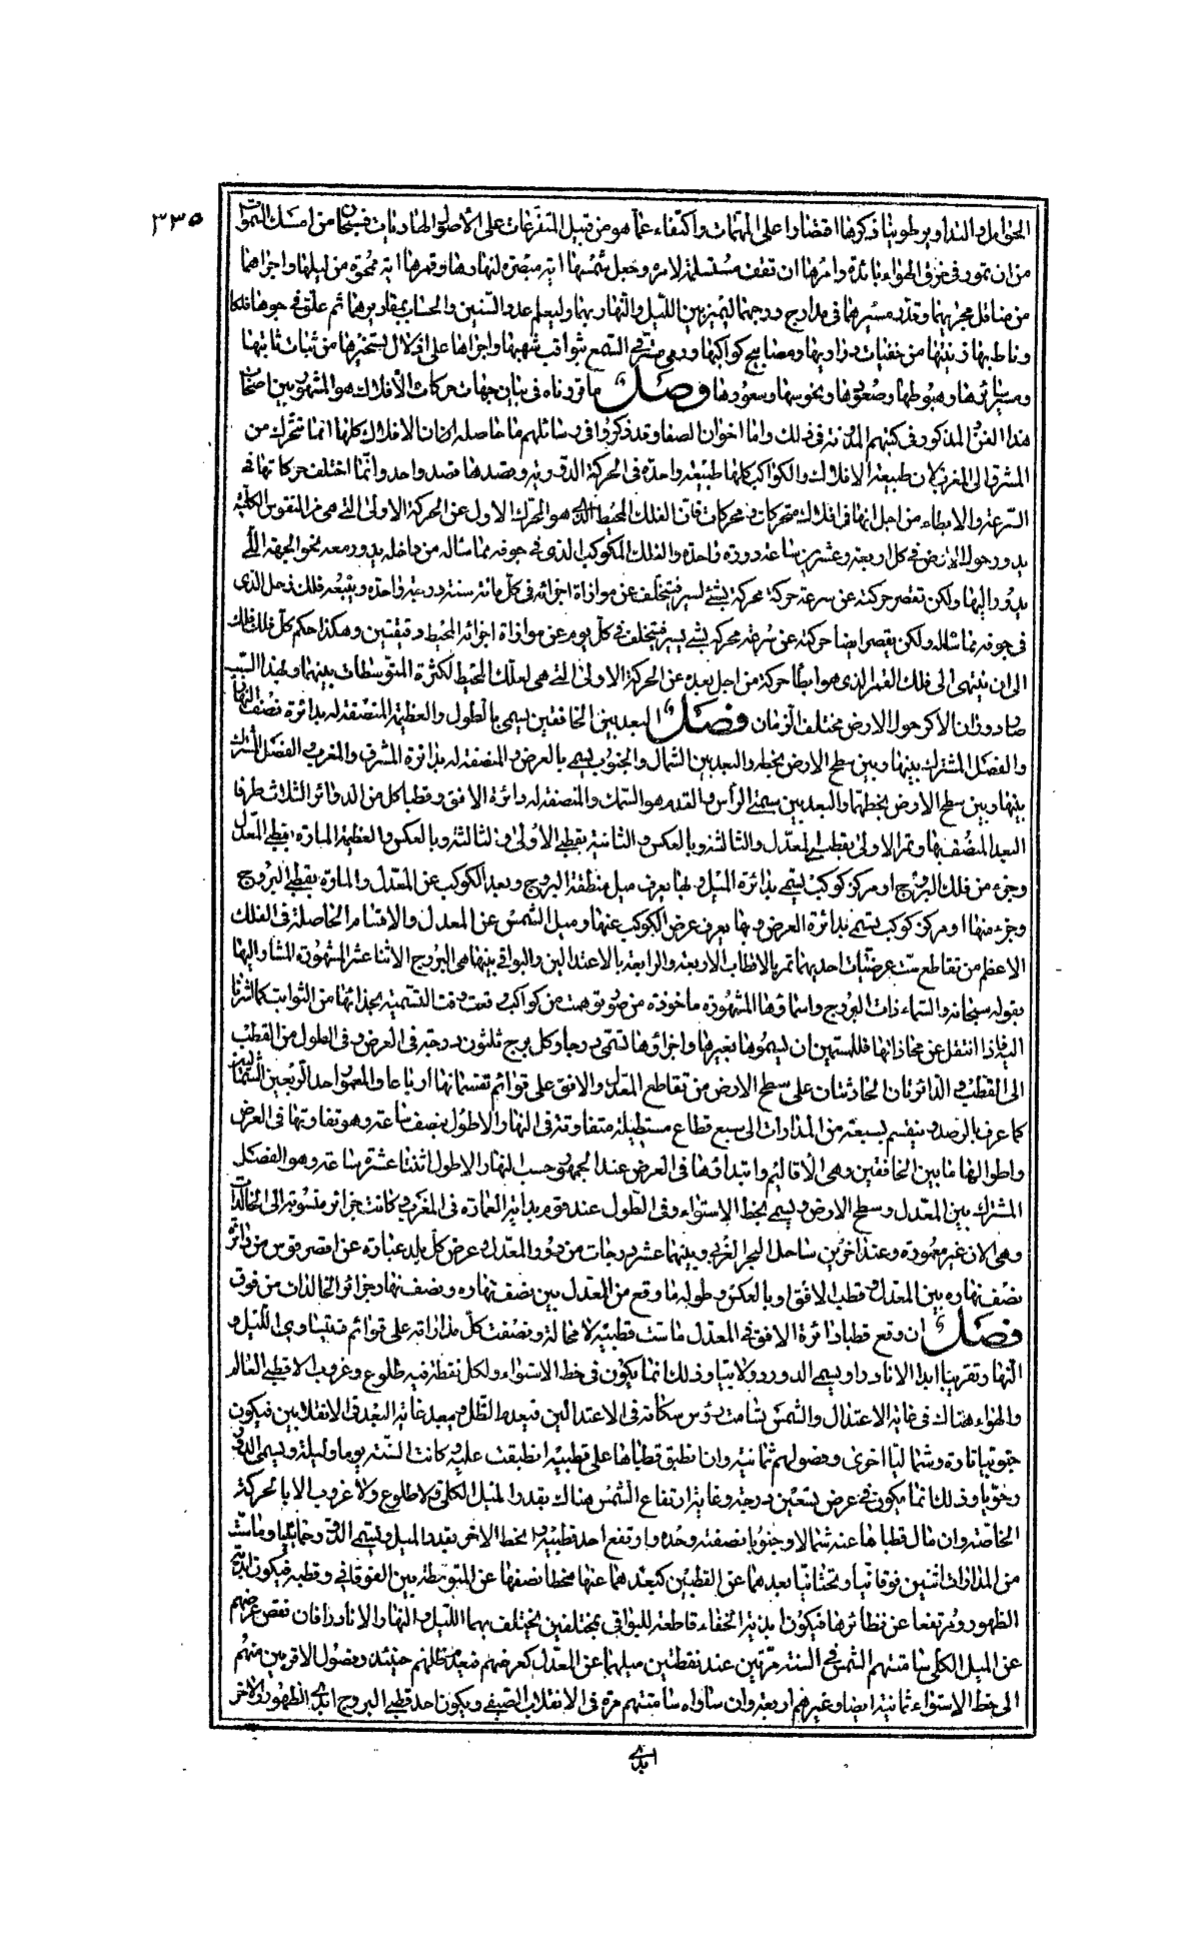 ٣٣٥
الحوامل والتداوير طوينا ذكرها اقتصارا على المهمات واكتفاء عما هو من قبيل المتفرعات على الأصول الهاديات فسبحان من امسك السموات
من ان تمور في خرق الهواء بائدة وامرها ان تقف مستسلمة لامره وجعل شمسها اية مبصرة لنهارها وقمرها اية ممحوة من ليلها واجراهما
من مناقل مجريهما وقدر مسيرهما في مدارج درجهما ليميز بين الليل والنهار بهما وليعلم عدد السنين والحساب بمقاديرهما ثم علق في جوها فلكا
وناط بها زينتها من خفيات دراريها ومصابيح كواكبها ورمى مسترقي السمع بثواقب شهبها واجراها على اذلال تسخيرها من ثبات ثابتها
ومسير سائرها وهبوطها وصعودها ونحوسها وسعودها فصل ما قررناه في بيان جهات حركات الأفلاك هو المشهور بين اصحاب
هذا الفن المذكور في كتبهم المدونة في ذلك واما اخوان الصفا وقد ذكروا في رسائلهم ما حاصله ان الافلاك كلها انما تتحرك من
المشرق الى المغرب لان طبيعة الافلاك والكواكب كلها طبيعة واحدة في الحركة الدورية وقصدها قصد واحد وانما اختلف حركاتها في
السرعة والابطاء من اجل انها في افلاك متحركات ومحركات فان الفلك المحيط الذي هو المتحرك الاول عن الحركة الاولى التي هي من النفوس الكلية
يدور حول الارض في كل اربعة وعشرين ساعة دورة واحدة والفلك المكوكب الذي في جوفه مماس له من داخله يدور معه نحو الجهة التي
يدور اليها ولكن تقصر حركته عن سرعة حركة محركه بشئ يسير فيتخلف عن موازاة اجزائه في كل مائة سنة درجة واحدة ويتبعه فلك زحل الذي
في جوفه مماس له ولكن يقصر ايضا حركته عن سرعة محركه بشئ يسير فيتخلف في كل يوم عن موازاة اجزاء المحيط دقيقتين وهكذا حكم كل فلك فلك
الى ان ينتهي الى فلك القمر الذي هو ابطأ حركة من اجل بعده عن الحركة الاولى التي هي لفلك المحيط لكثرة المتوسطات بينهما ولهذا السبب
صار دوران الاكر حول الارض مختلف الزمان فصل البعد بين الخافقين يسمى بالطول والعظيمة المنصفة له بدائرة نصف النهار
والفصل المشترك بينها وبين سطح الارض بخطه والبعد بين الشمال والجنوب يسمى بالعرض والمنصفة له بدائرة المشرق والمغرب والفصل المشترك
بينها وبين سطح الارض بخطهما والبعد بين سمتي الرأس والقدم هو السمك والمنصفة له دائرة الافق وقطبا كل من الدوائر الثلاث طرفا
البعد المنصف بها وتمر الاولى بقطبي المعدل والثالثة وبالعكس والثانية بقطبي الأولى والثالثة وبالعكس والعظيمة المارة بقطبي المعدل
وجزء من فلك البروج او مركز كوكب يسمى بدائرة الميل وبها يعرف ميل منطقة البروج وبعد الكوكب عن المعدل والمارة بقطبي البروج
وجزء منها او مركز كوكب يسمى بدائرة العرض وبها يعرف عرض الكوكب عنها وميل الشمس عن المعدل والاقسام الحاصلة في الفلك
الاعظم من تقاطع ست عرضيات احديهما تمر بالاقطاب الاربعة والرابعة بالاعتدالين والبواقي بينهما هي البروج الاثنا عشر المشهورة المشار اليها
بقوله سبحانه والسماء ذات البروج واسماؤها المشهورة ماخوذة من صور توهمت من كواكب وقعت وقت التسمية بحذائها من الثوابت كما اشرنا
اليه فاذا انتقل عن محاذاتها فللمسمين ان يسموها بغيرها واجزاؤها تسمى درجا وكل برج ثلثون درجة في العرض وفي الطول من القطب
الى القطب والدائرتان الحادثتان على سطح الارض من تقاطع المعدل والافق على قوائم تقسمانها ارباعا والمعمور احد الربعين الشماليين
كما عرف بالرصد وينقسم بسبعة من المدارات الى سبع قطاع مستطيلة متفاوتة في النهار الاطول بنصف ساعة وهو تفاوتها في العرض
واطوالها ما بين الخافقين وهي الأقاليم وابتداؤها في العرض عند الجمهور حسب النهار الاطول اثنتا عشرة ساعة وهو الفصل
المشترك بين المعدل وسطح الارض ويسمى بخط الاستواء وفي الطول عند قوم بداية العمارة في المغرب وكانت جزائر منسوبة الى الخالدات
وهي الان غير معمورة وعند اخرين ساحل البحر الغربي وبينهما عشر درجات من دور المعدل وعرض كل بلد عبارة عن اقصر قوس من دائرة
نصف نهاره بين المعدل وقطب الافق او بالعكس وطوله ما وقع من المعدل بين نصف نهاره ونصف نهار جزائر الخالدات من فوق
فصل ان وقع قطبا دائرة الافق في المعدل ماست قطبيه لا محالة ونصفت كل مداراته على قوائم فيتساوى الليل و
النهار تقريبا ابدا الا نادرا ويسمى الدور دولابيا وذلك انما يكون في خط الاستواء ولكل نقطة فيه طلوع وغروب الا قطبي العالم
والهواء هناك في غاية الاعتدال والشمس تسامت رؤس سكانه في الاعتدالين فيعدم الظل وتبعد غاية البعد في الانقلابين فيكون
جنوبيا تارة وشماليا اخرى وفصولهم ثمانية وان انطبق قطباها على قطبيه انطبقت عليه وكانت السنة يوما وليلة ويسمى الدور
رحويا وذلك انما يكون في عرض تسعين درجة وغاية ارتفاع الشمس هناك بقدر الميل الكلي ولا طلوع ولا غروب الا بالحركة
الخاصة وان مال قطباها عنه شمالا وجنوبا نصفته وحده وارتفع احد قطبيه وانحط الاخر بقدر الميل ويسمى الدور حمائليا وماست
من المدارات اثنين فوقانيا وتحتانيا بعدهما عن القطبين كبعدهما عنها منحطا نصفها عن المتوسطة بين الفوقاني وقطبه فيكون ابدي
الظهور ومرتفعا عن نظائرها فيكون ابدية الخفاء قاطعة للبواقي بمختلفين يختلف بهما الليل والنهار الا نادرا فان نقص عرضهم
عن الميل الكلي سامتتهم الشمس في السنة مرتين عند نقطتين ميلهما عن المعدل كعرضهم فيعدم ظلهم حينئذ وفصول الاقربين منهم
الى خط الاستواء ثمانية ايضا وغيرهم اربعة وان ساواه سامتتهم مرة في الانقلاب الصيفي ويكون احد قطبي البروج ابدي الظهور والاخر
ابدي